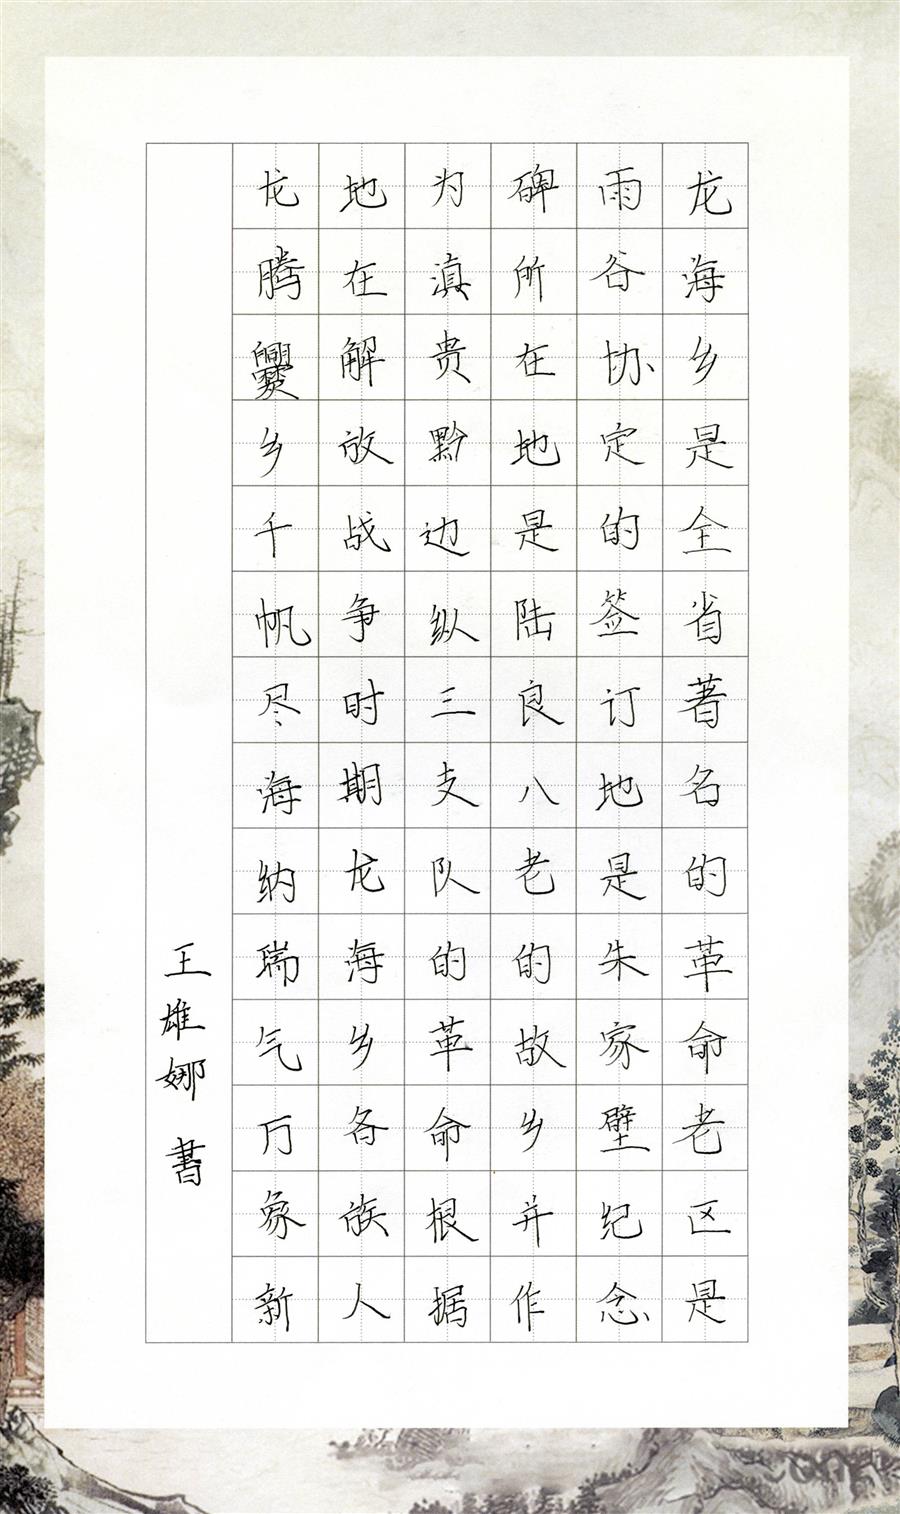 龙海乡是全省著名的革命老区是
雨谷协定的签订地是朱家壁纪念
碑所在地是陆良八老的故乡并作
为滇贵黔边纵三支队的革命根据
地在解放战争时期龙海乡各族人
龙腾爨乡千帆尽海纳瑞气万象新
王雄娜 書